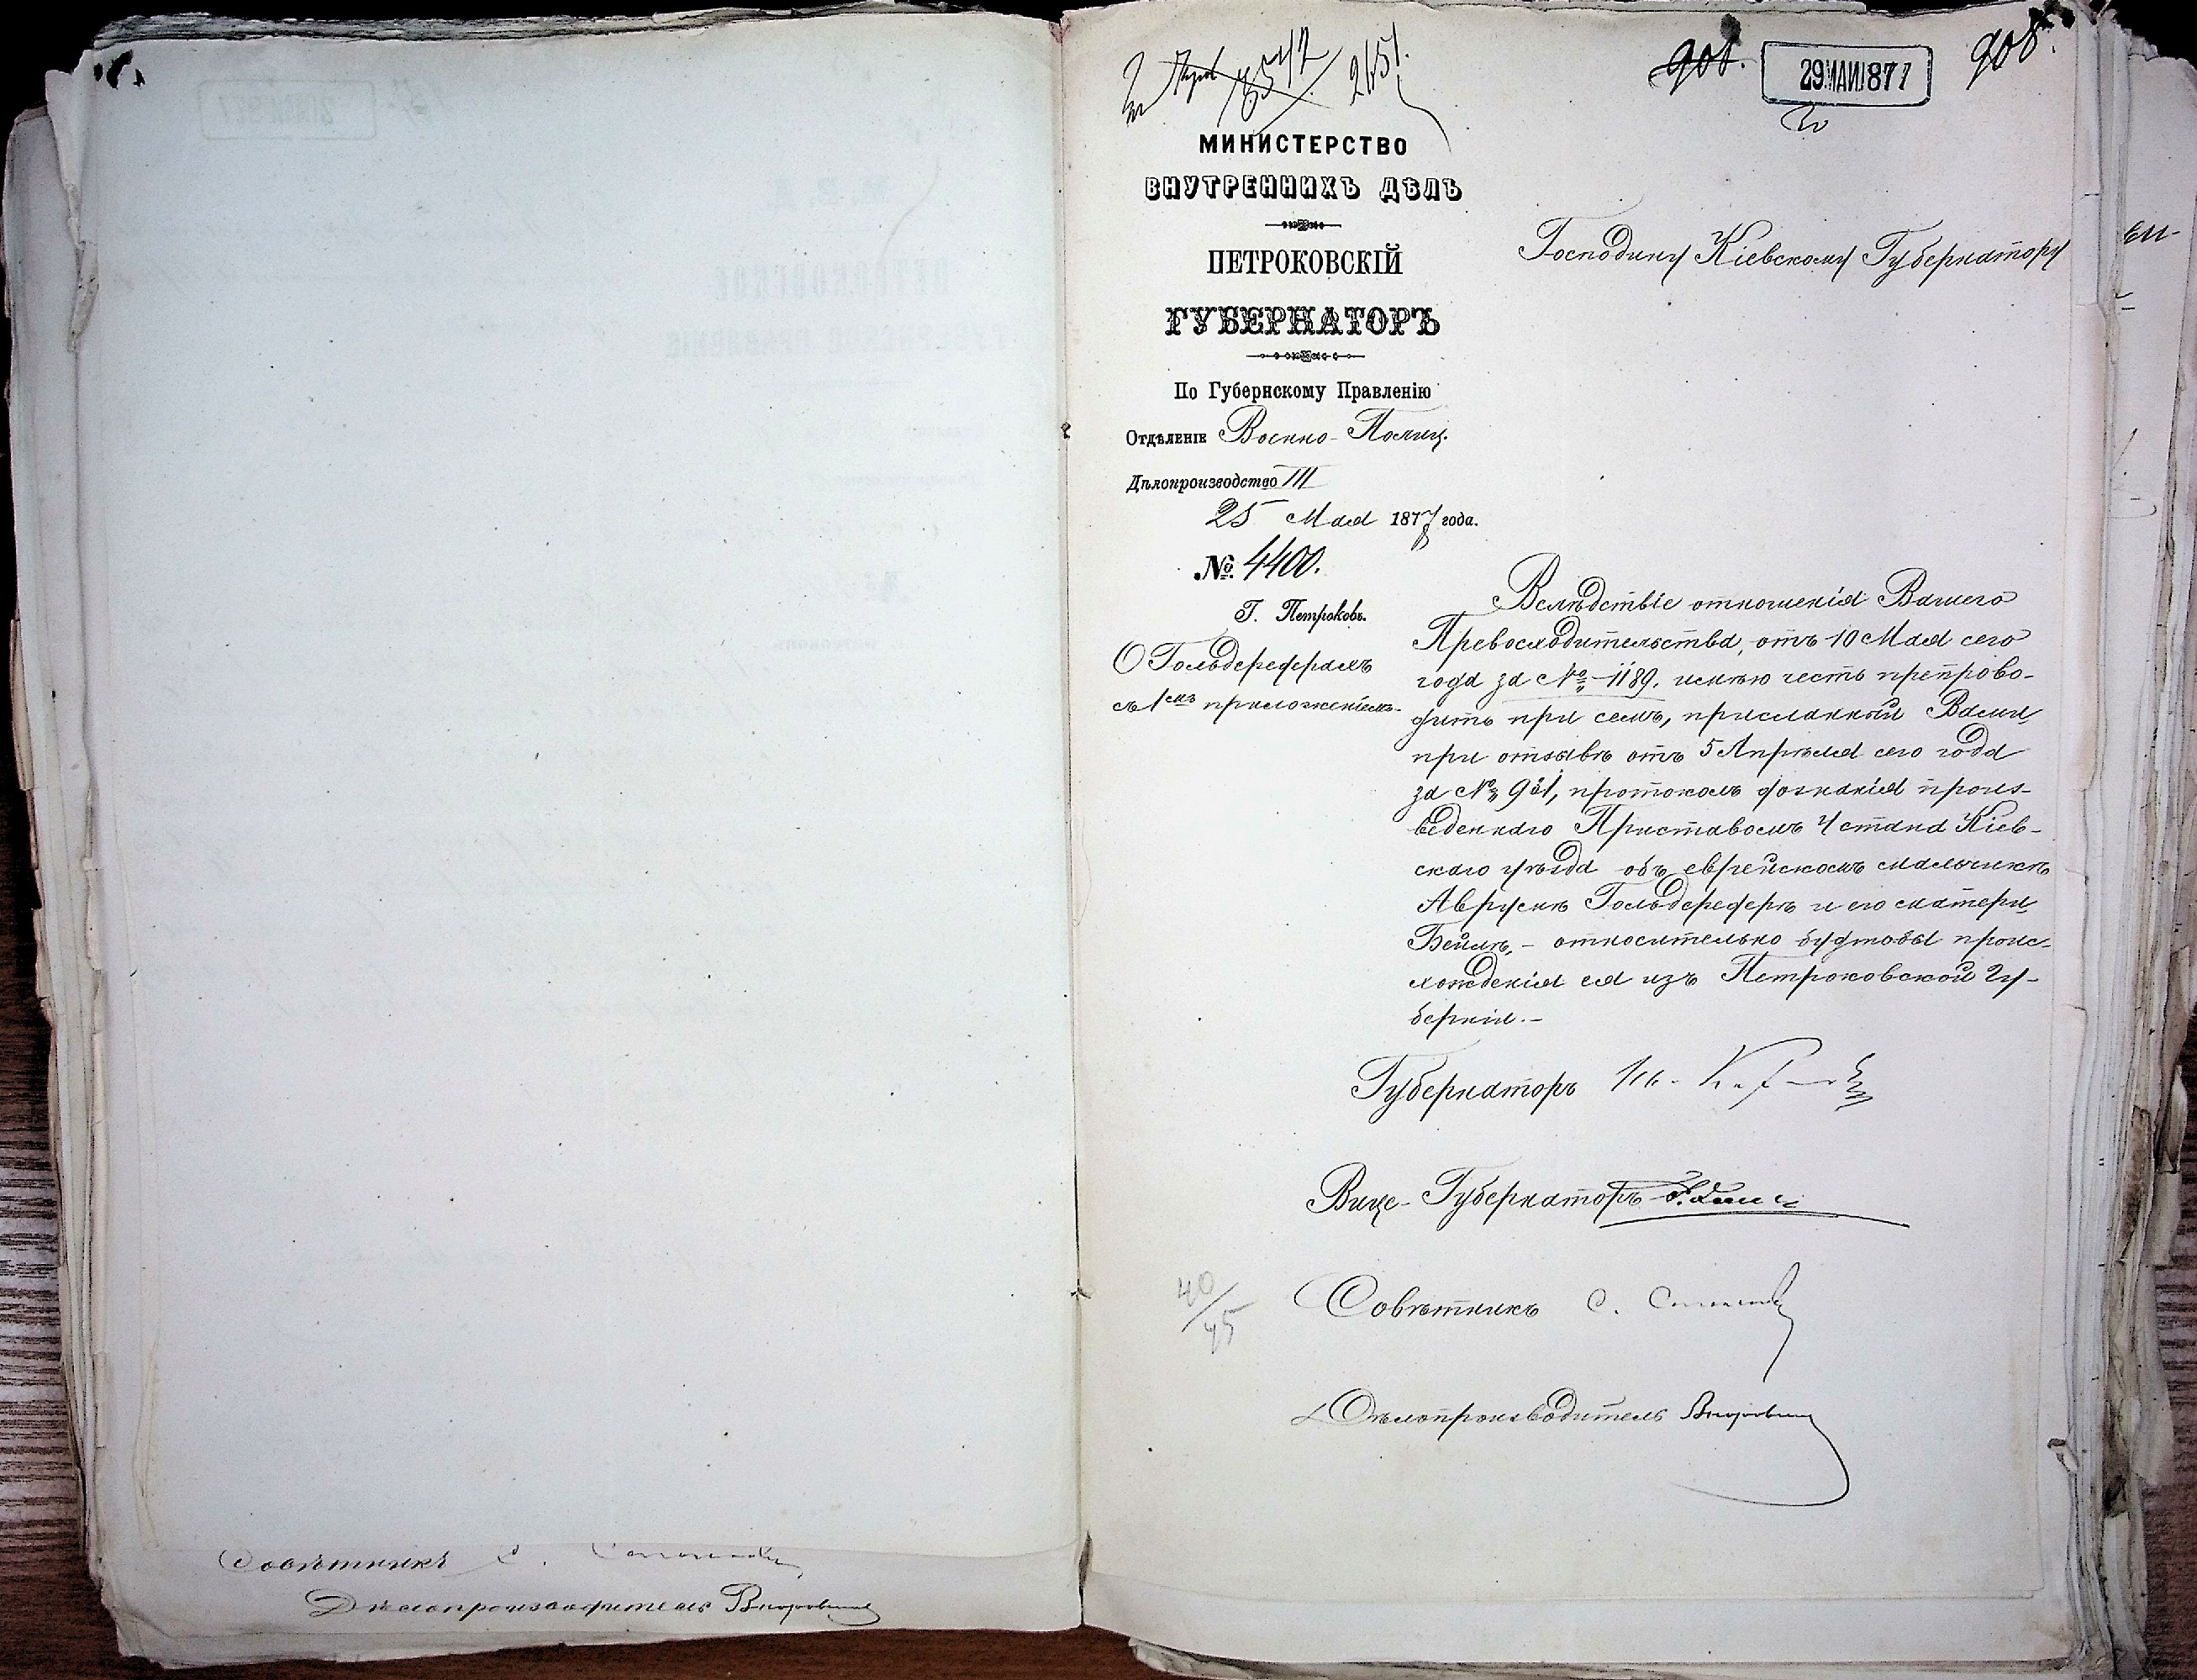 Совѣтникъ С.
Дѣлопроизводитель
3542 2151.
908. 29 МАЙ 1877 908.
МИНИСТЕРСТВО
ВНУТРЕННИХЪ ДѢЛЪ
ПЕТРОКОВСКІЙ
ГУБЕРНАТОРЪ
По Губернскому Правленію
Отдѣленіе Военно-Полиц.
Дѣлопроизводство III
25 Мая 1877 года.
№ 4400.
Г. Петроковъ.
О Гольдереферахъ
съ 1мъ приложеніемъ.
Господину Кіевскому Губернатору
Вслѣдствіе отношенія Вашего
Превосходительства, отъ 10 Мая сего
года за № 1189, имѣю честь препрово-
дить при семъ, присланный Вами,
при отзывѣ отъ 5 Апрѣля сего года
за № 921, протоколъ дознанія произ-
веденнаго Приставомъ 4 стана Кіев-
скаго уѣзда объ еврейскомъ мальчикѣ
Аврумѣ Гольдереферѣ и его матери,
Бейлѣ, - относительно будтобы проис-
хожденія ея изъ Петроковской Гу-
берніи. -
Губернаторъ
Вице-Губернаторъ
Совѣтникъ С.
Дѣлопроизводитель
40/45